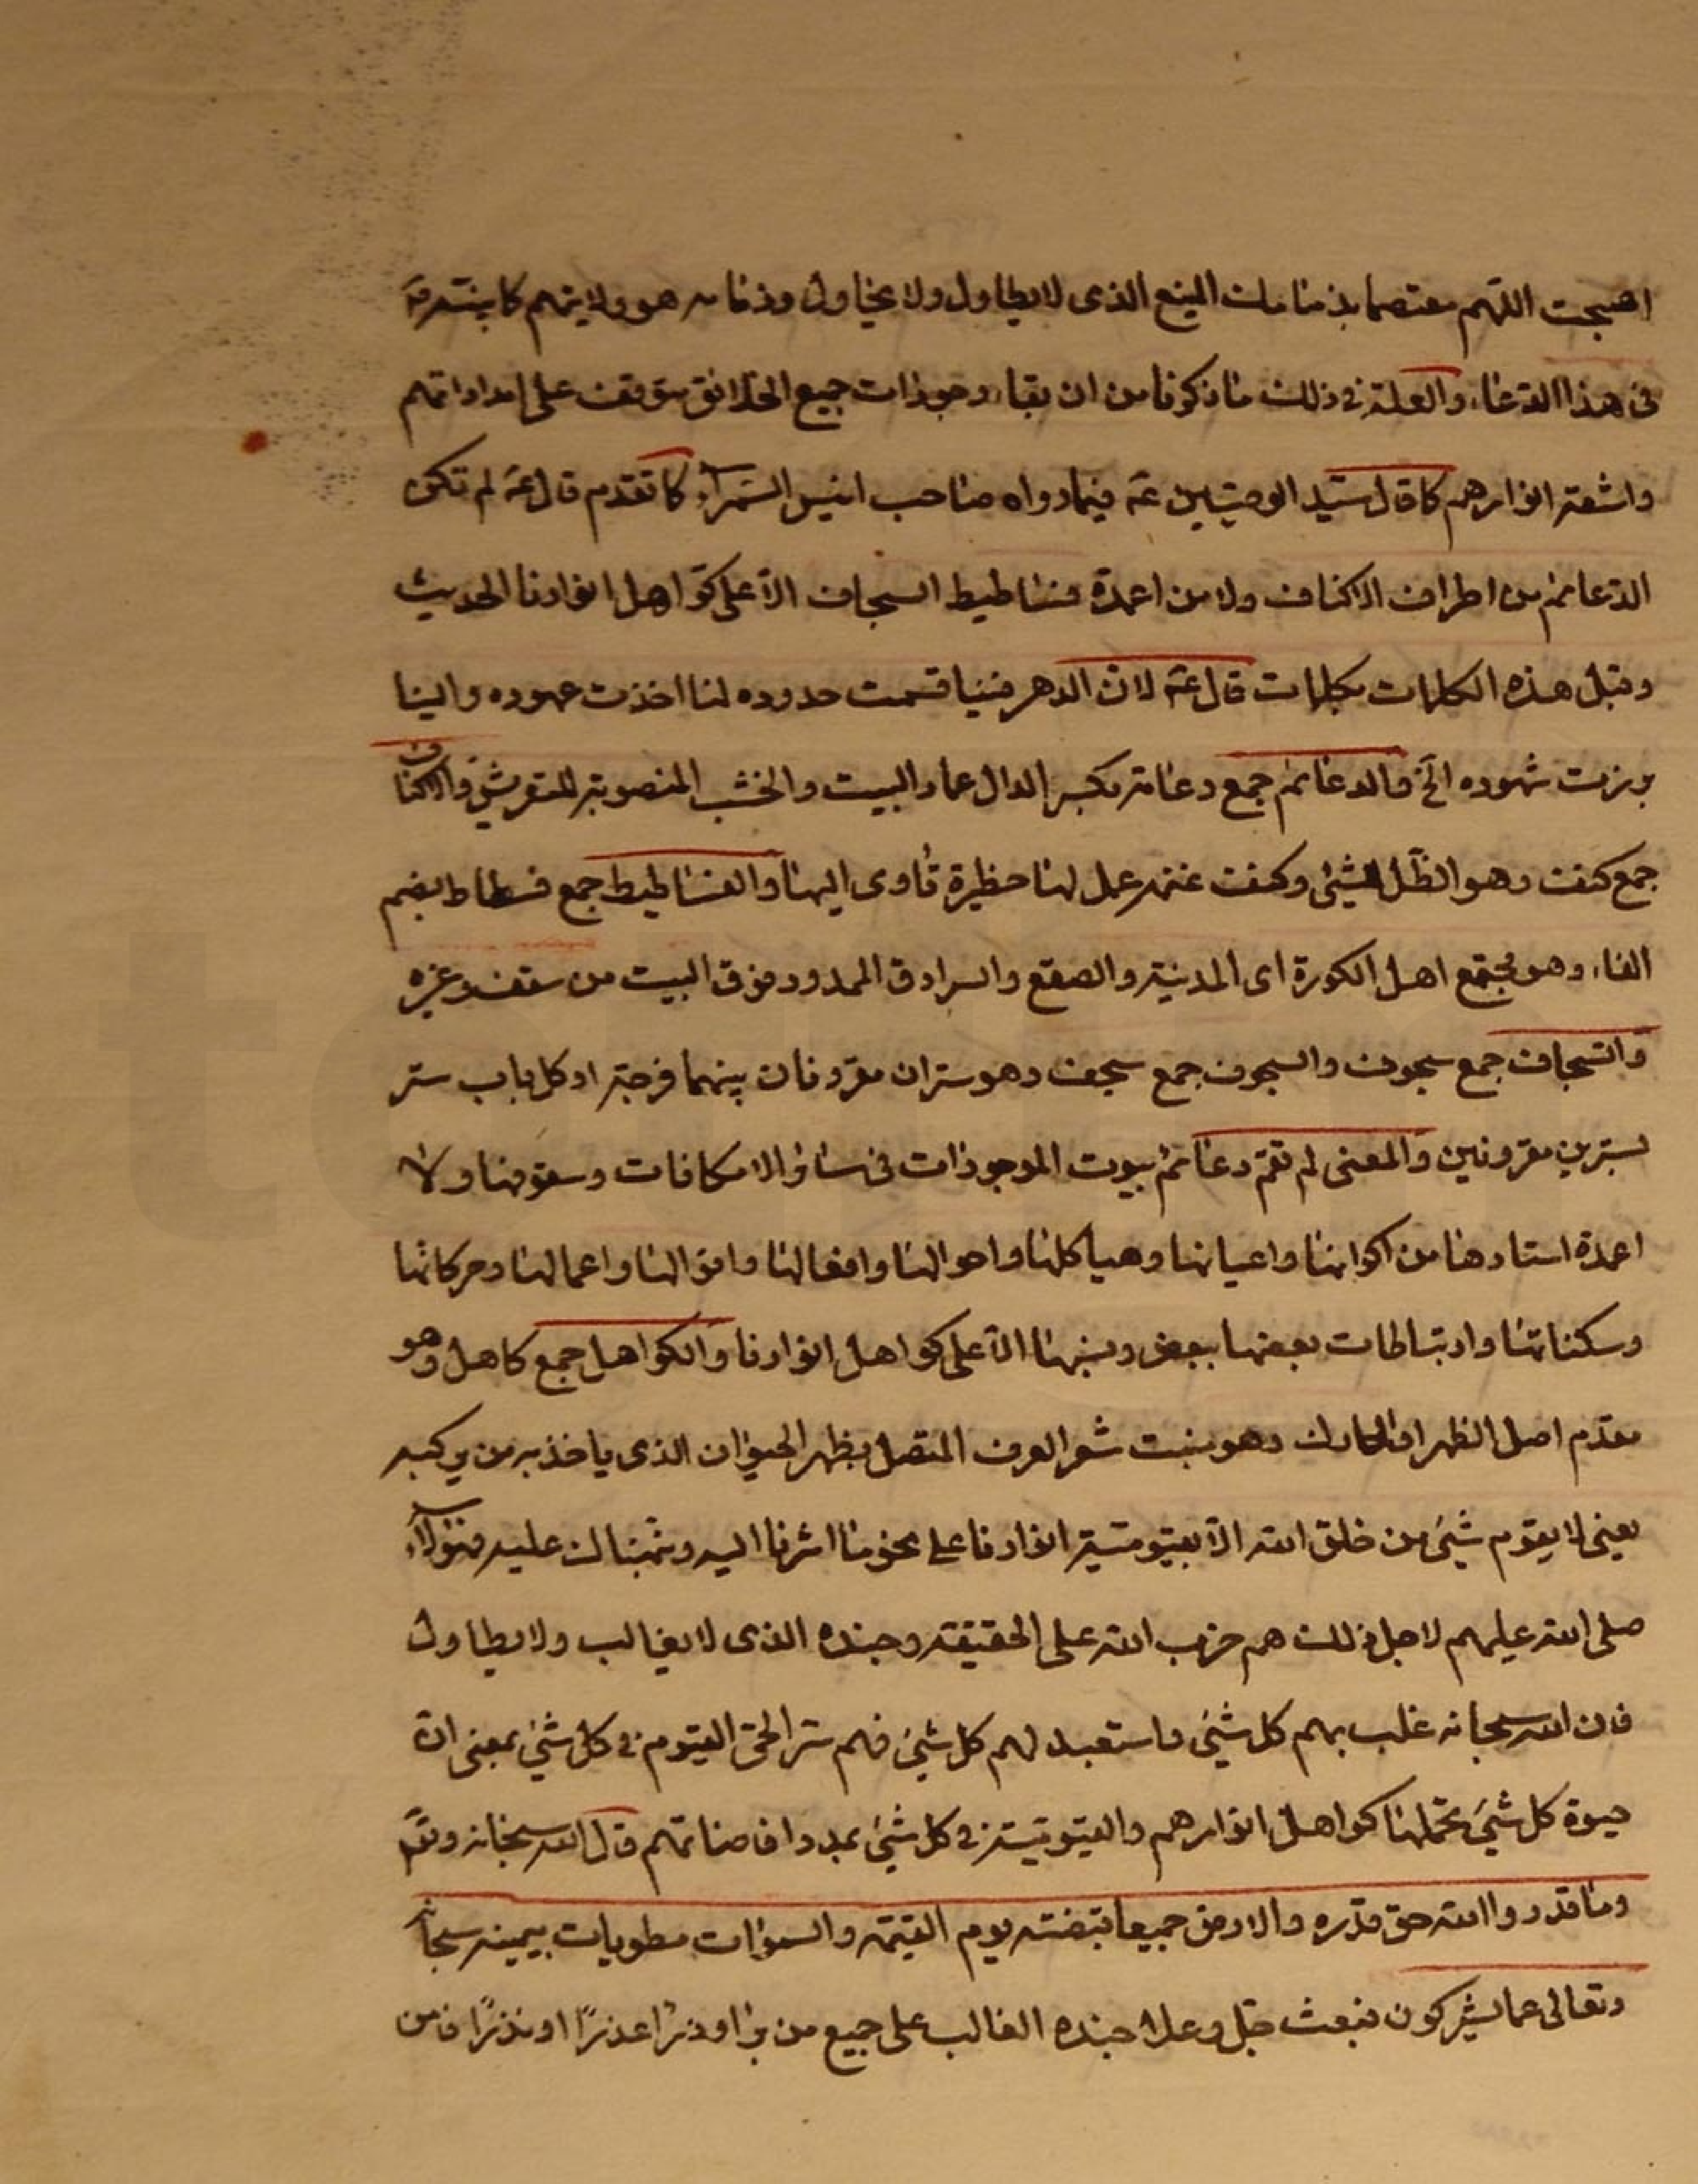 اصبحت اللهم معتصما بذمامك المنيع الذى لا يطاول ولا يحاول وذمامه هو ولايتهم كما بينته
فى هذا الدعاء والعلة فى ذلك ما ذكرنا من ان بقاء وجودات جميع الخلائق متوقف على امداداتهم
واشعة انوارهم كما قال سيد الوصيين عه فيما رواه صاحب انيس السمراء كما تقدم قال عه لم تكن
الدعائم من اطراف الاكناف ولا من اعمدة فساطيط السجاف الا على كواهل انوارنا الحديث
وقبل هذه الكلمات بكلمات قال عه لان الدهر فينا قسمت حدوده لنا اخذت عهوده والينا
برزت شهوده الخ فالدعائم جمع دعامة بكسر الدال عماد البيت والخشب المنصوبة للتعريش والاكناف
جمع كنف وهو الظل للشئ وكنفت غنمه عمل لها حظيرة تاوى اليها والفساطيط جمع فسطاط بضم
الفاء وهو مجتمع اهل الكورة اى المدينة والصقع والسرادق الممدود فوق البيت من سقف وغيره
والسجاف جمع سجوف والسجوف جمع سجف وهو ستران مقرونان بينهما فرجة او كل باب ستر
بسترين مقرونين والمعنى لم تقم دعائم بيوت الموجودات فى سائر الامكانات وسقوفها ولا
اعمدة استارها من اكوانها واعيانها وهياكلها واحوالها وافعالها واقوالها واعمالها وحركاتها
وسكناتها وارتباطات بعضها ببعض ونسبها الا على كواهل انوارنا والكواهل جمع كاهل وهو
مقدم اصل الظهر او الحارك وهو منبت شعر العرف المتصل بظهر الحيوان الذى ياخذ به من يركبه
يعنى لا يقوم شئ من خلق الله الا بقيومية انوارنا على نحو ما اشرنا اليه ونبهناك عليه فهؤلاء
صلى الله عليهم لاجل ذلك هم حزب الله على الحقيقة وجنده الذى لا يغالب ولا يطاول
فان الله سبحانه غلب بهم كل شئ واستعبد لهم كل شئ فهم سر الحى القيوم فى كل شئ بمعنى ان
حيوة كل شئ تحملها كواهل انوارهم والقيومية فى كل شئ بمدد افاضاتهم قال الله سبحانه وتعم
وما قدروا الله حق قدره والارض جميعا قبضته يوم القيمة والسموات مطويات بيمينه سبحانه
وتعالى عما يشركون فبعث جل وعلا جنده الغالب على جميع من برا وذرا عذرًا او نذرًا فامن